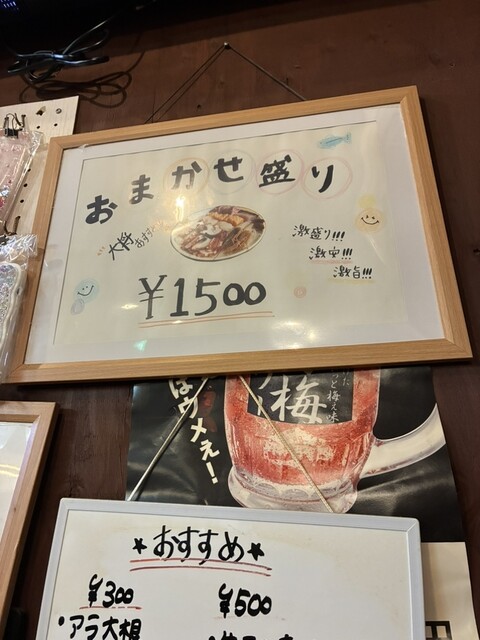 おまかせ盛り
大将おすすめ
激盛り!!!
激安!!!
激旨!!!
¥1500
はウメぇ!
梅
★おすすめ★
¥300
¥500
・アラ大根